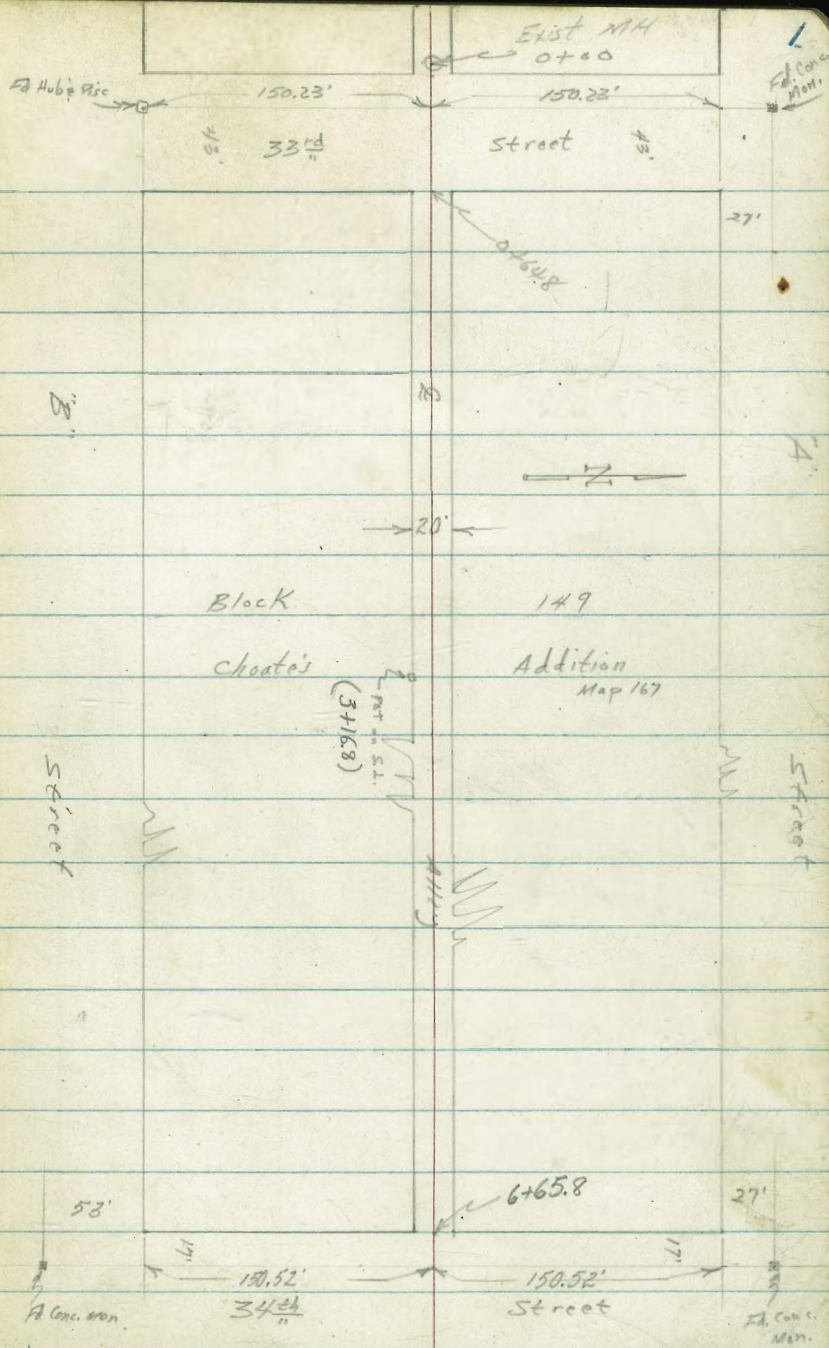 1
Exist MH
0+00
Fd Hub & Disc
Fd. Conc. Mon.
150.23'
150.23'
43'
33rd
Street
43'
27'
0+64.8
"B"
"A"
N
20'
Block
149
Choate's
Addition
Map 167
Pot on S.L.
(3+16.8)
Street
Street
Alley
6+65.8
53'
27'
17'
17'
150.52'
150.52'
Fd Conc. Mon
34th
Street
Fd. Conc. Mon.